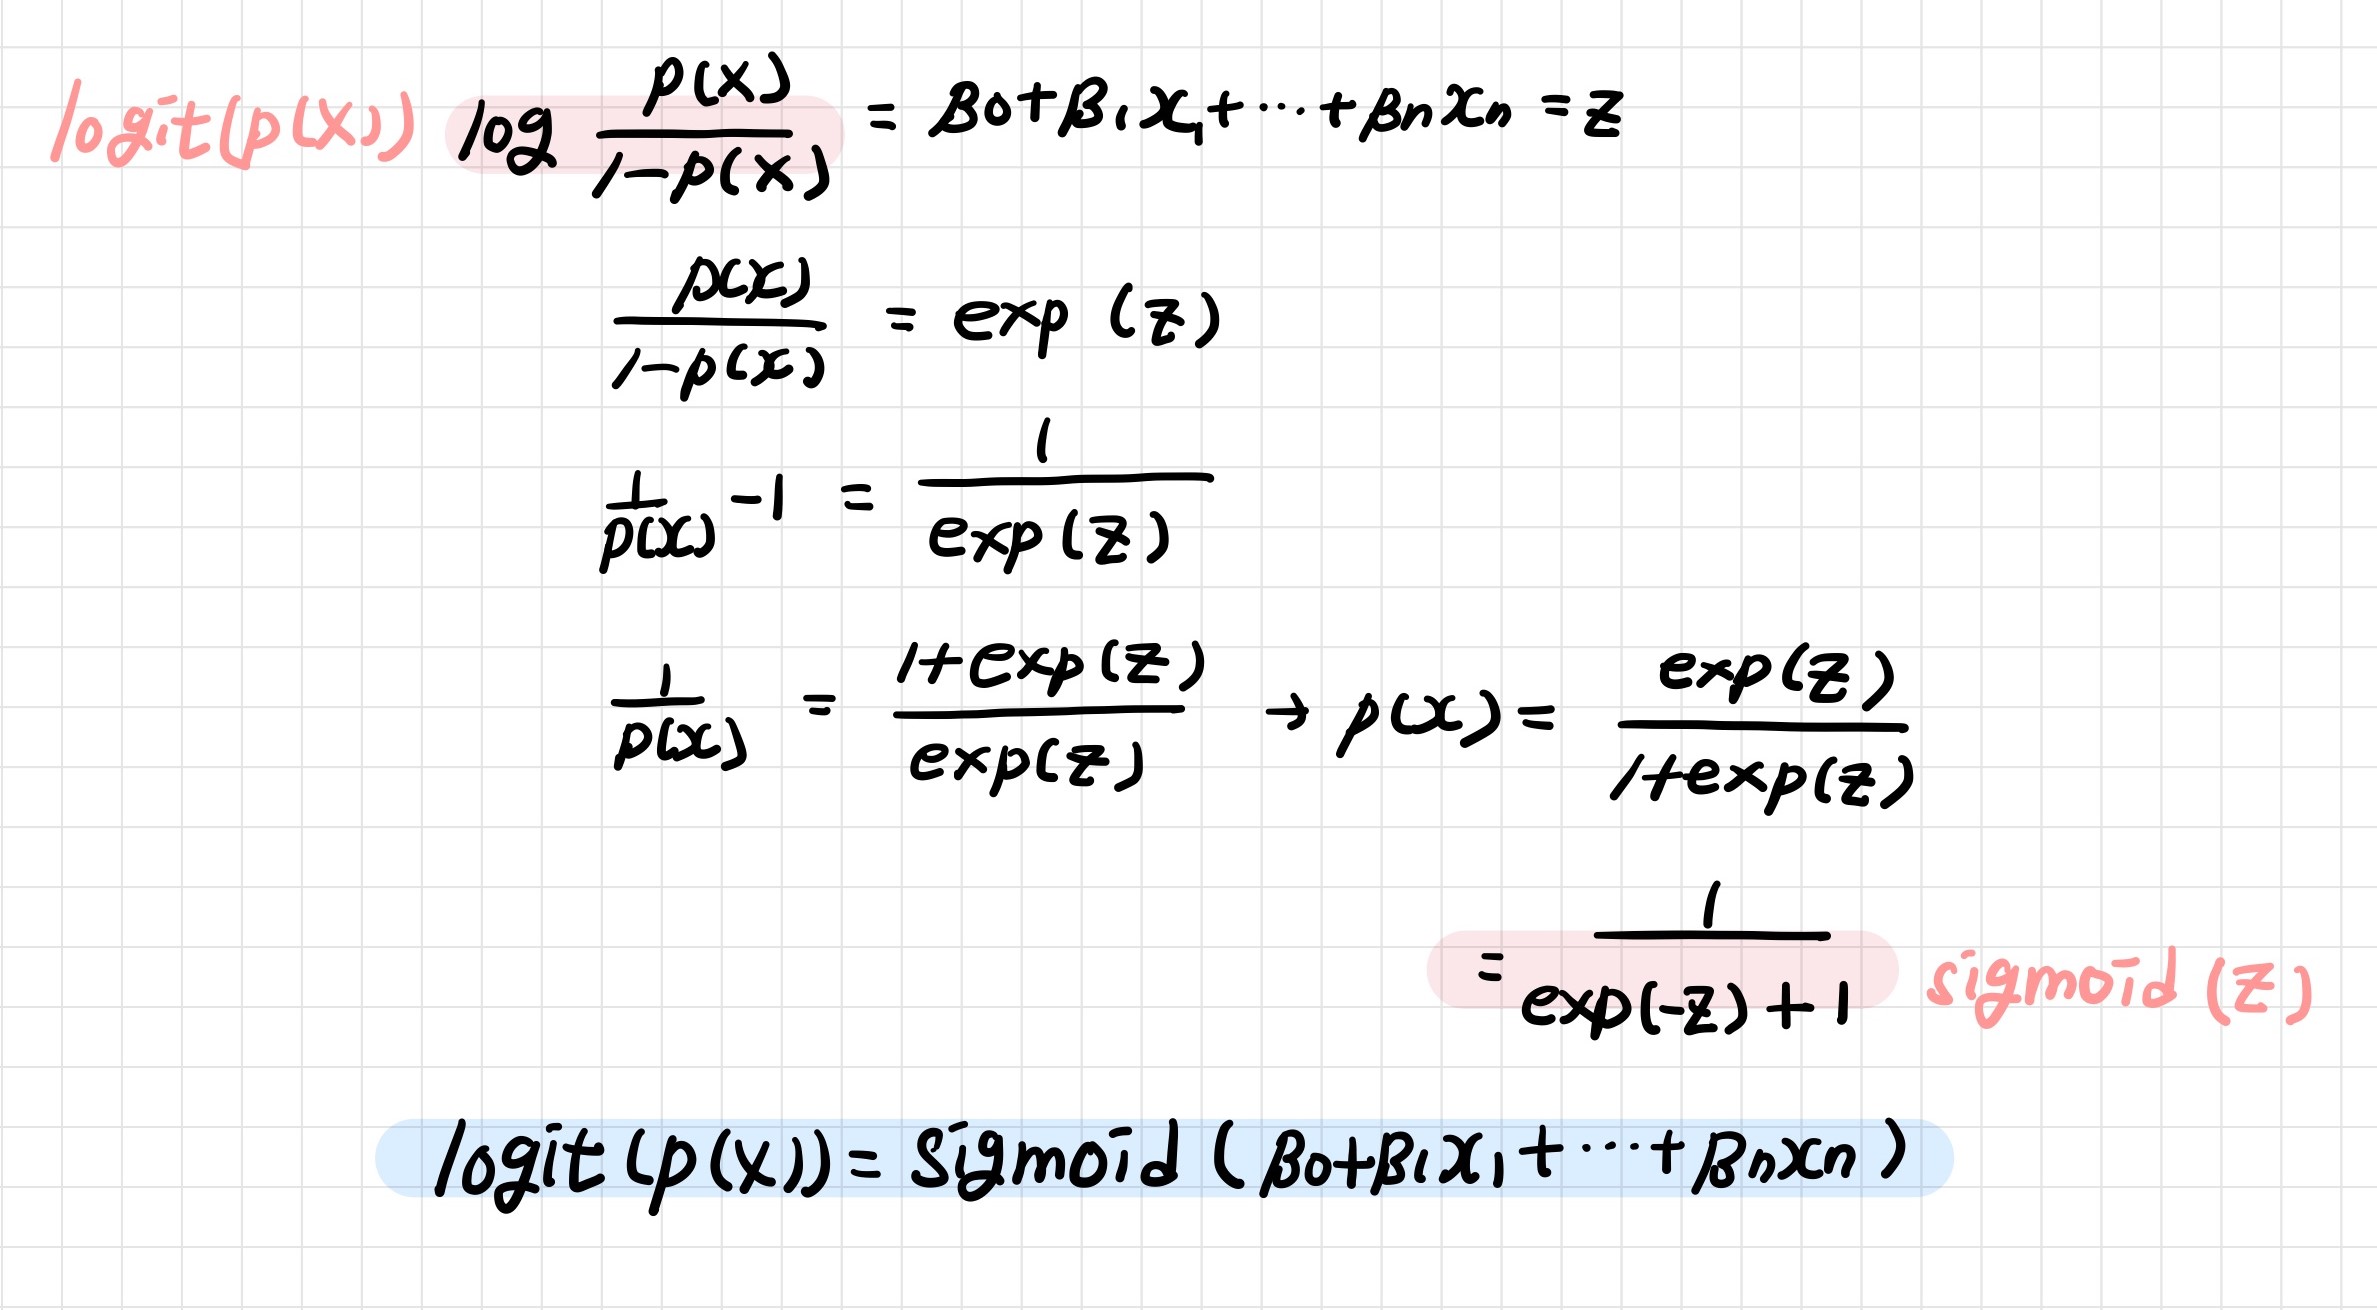 logit(p(x)) log p(x)/1-p(x) = β0+β1x1+⋯+βnxn = z
p(x)/1-p(x) = exp (z)
1/p(x) -1 = 1/exp(z)
1/p(x) = 1+exp(z)/exp(z) → p(x) = exp(z)/1+exp(z)
= 1/exp(-z)+1 sigmoid (z)
logit(p(x)) = sigmoid (β0+β1x1+⋯+βnxn)